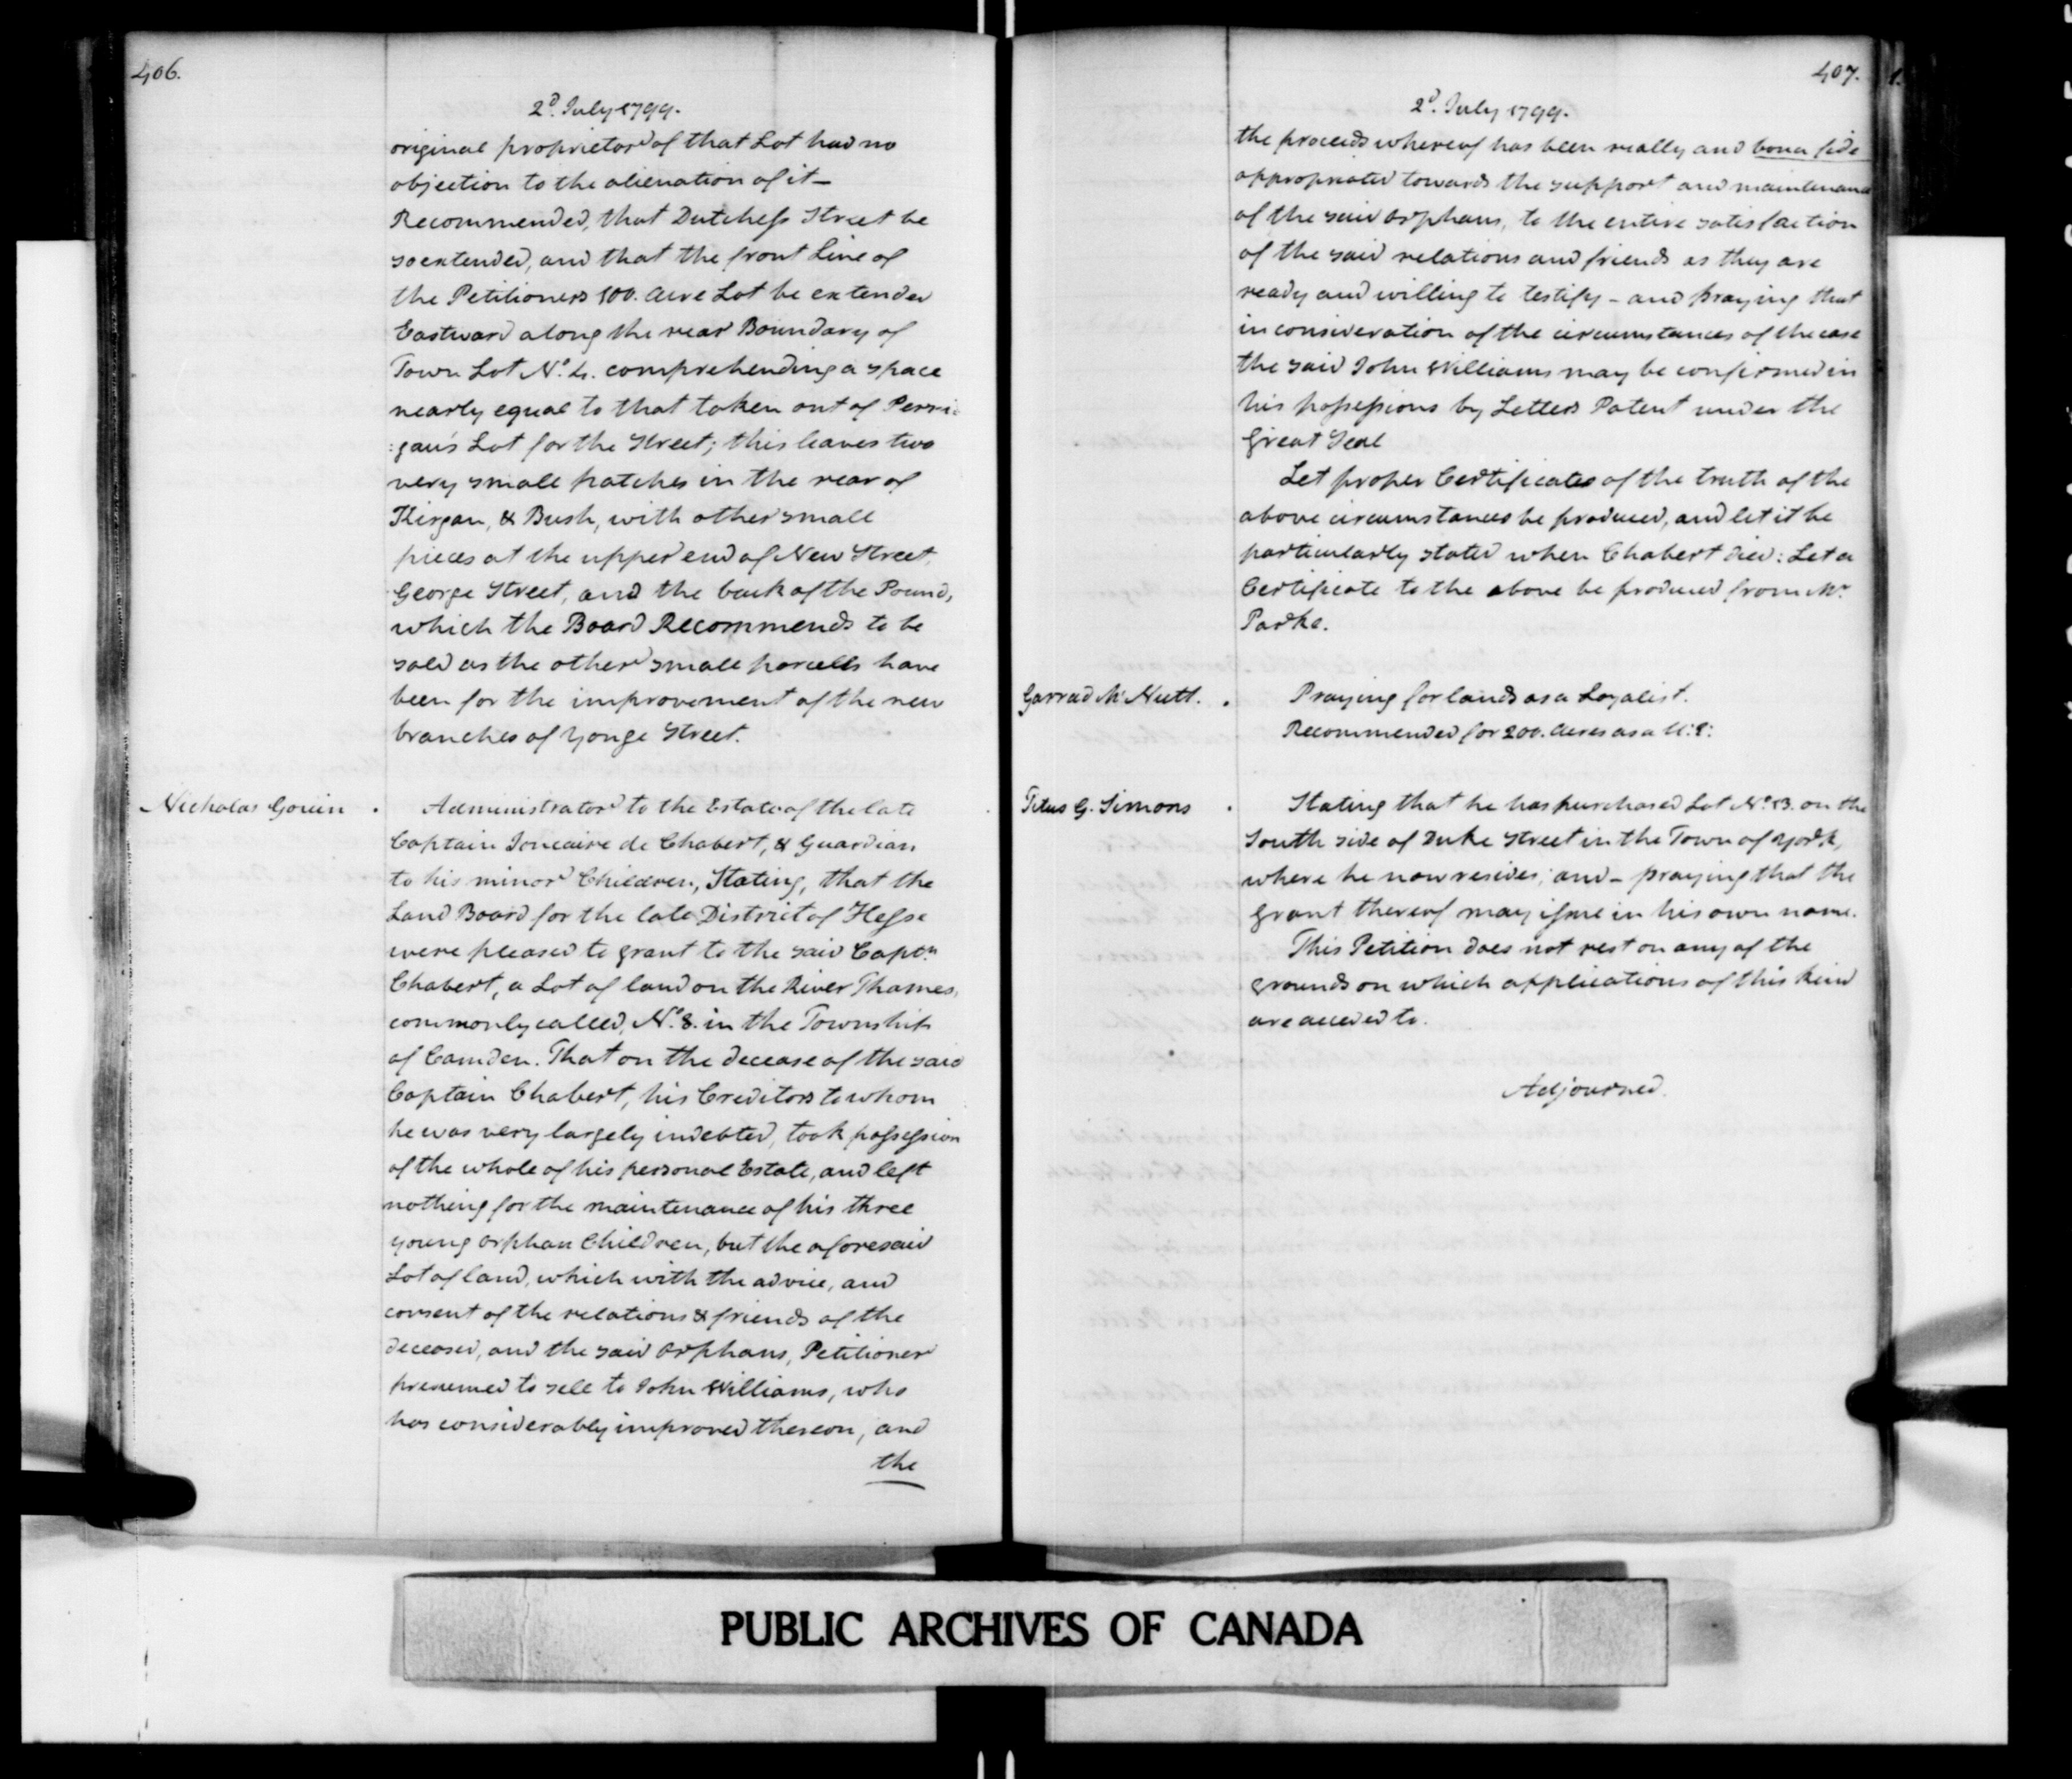 406.
2d. July 1799.
original proprietor of that Lot had no
objection to the alienation of it –
Recommended, that Dutchess Street be
so extended, and that the front Line of
the Petitioners 100. Acre Lot be extended
Eastward along the rear Boundary of
Town Lot No. 4. comprehending a space
nearly equal to that taken out of Perri-
:gan's Lot for the Street; this leaves two
very small patches in the rear of
Kirgan, & Bush, with other small
pieces at the upper end of New Street,
George Street, and the back of the Pound,
which the Board Recommends to be
sold as the other small parcells have
been for the improvement of the new
branches of Yonge Street.
Nicholas Gouin . Administrator to the Estate of the late
Captain Joncaire de Chabert, & Guardian
to his minor Children, Stating, that the
Land Board for the late District of Hesse
were pleased to grant to the said Captn.
Chabert, a Lot of land on the River Thames,
commonly called, No. 8. in the Township
of Camden. That on the decease of the said
Captain Chabert, his Creditors to whom
he was very largely indebted, took possession
of the whole of his personal Estate, and left
nothing for the maintenance of his three
young orphan Children, but the aforesaid
Lot of land, which with the advice, and
consent of the relations & friends of the
deceased, and the said Orphans, Petitioner
presumed to sell to John Williams, who
has considerably improved thereon, and
the
407.
2d. July 1799.
the proceeds whereof has been really and bona fide
appropriated towards the support and maintenance
of the said Orphans, to the entire satisfaction
of the said relations and friends as they are
ready and willing to testify – and praying that
in consideration of the circumstances of the case
the said John Williams may be confirmed in
his possessions by Letters Patent under the
Great Seal
Let proper Certificates of the truth of the
above circumstances be produced, and let it be
particularly stated when Chabert died: Let a
Certificate to the above be produced from Mr.
Parke.
Garrad McNutt. . Praying for lands as a Loyalist.
Recommended for 200. Acres as a U:E:
Titus G. Simons . Stating that he has purchased Lot No. 13. on the
South side of Duke Street in the Town of York,
where he now resides; and – praying that the
grant thereof may issue in his own name.
This Petition does not rest on any of the
grounds on which applications of this kind
are acceded to.
Adjourned.
PUBLIC ARCHIVES OF CANADA